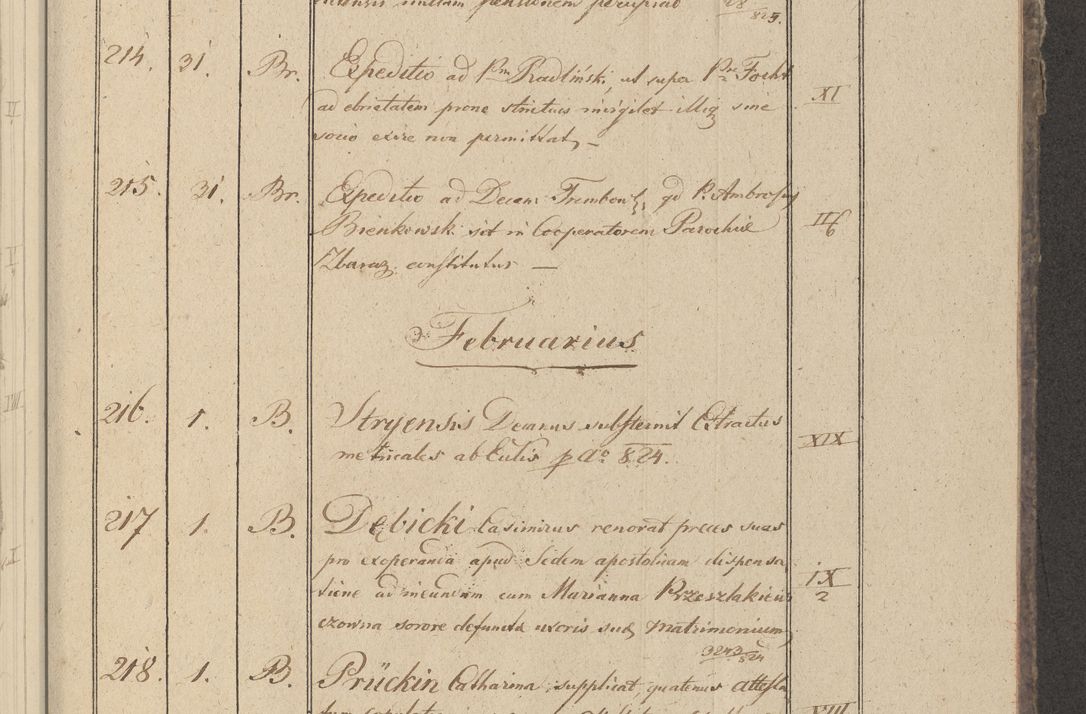 28/825.
214. 31. Br. Expeditio ad Pm Radliński, ut supra Pr Focht
ad ebrietatem prone strictius invigilet illiq sine XI
socio exire non permittat, —
215. 31. Br. Expeditio ad Decan Trembowl, qd P. Ambrosius
Bienkowski sit in Cooperatorem Parochiæ II/6
Zbaraz. constitutus —
Februarius
216. 1. B. Stryensis Decanus substernit Extractus
metricales ab Exteris p Ao 824. XIX
217 1. B. Dębicki Casimirus renovat preces suas
pro exoperanda apud Sedem apostolicam dispensa
tione ad ineundum cum Marianna Przeszlakiewi IX/2
czowna sorore defuncta uxoris suæ matrimonium,
3243/824
218. 1. B. Prückin Catharina supplicat, quatenus attesta
XVIII